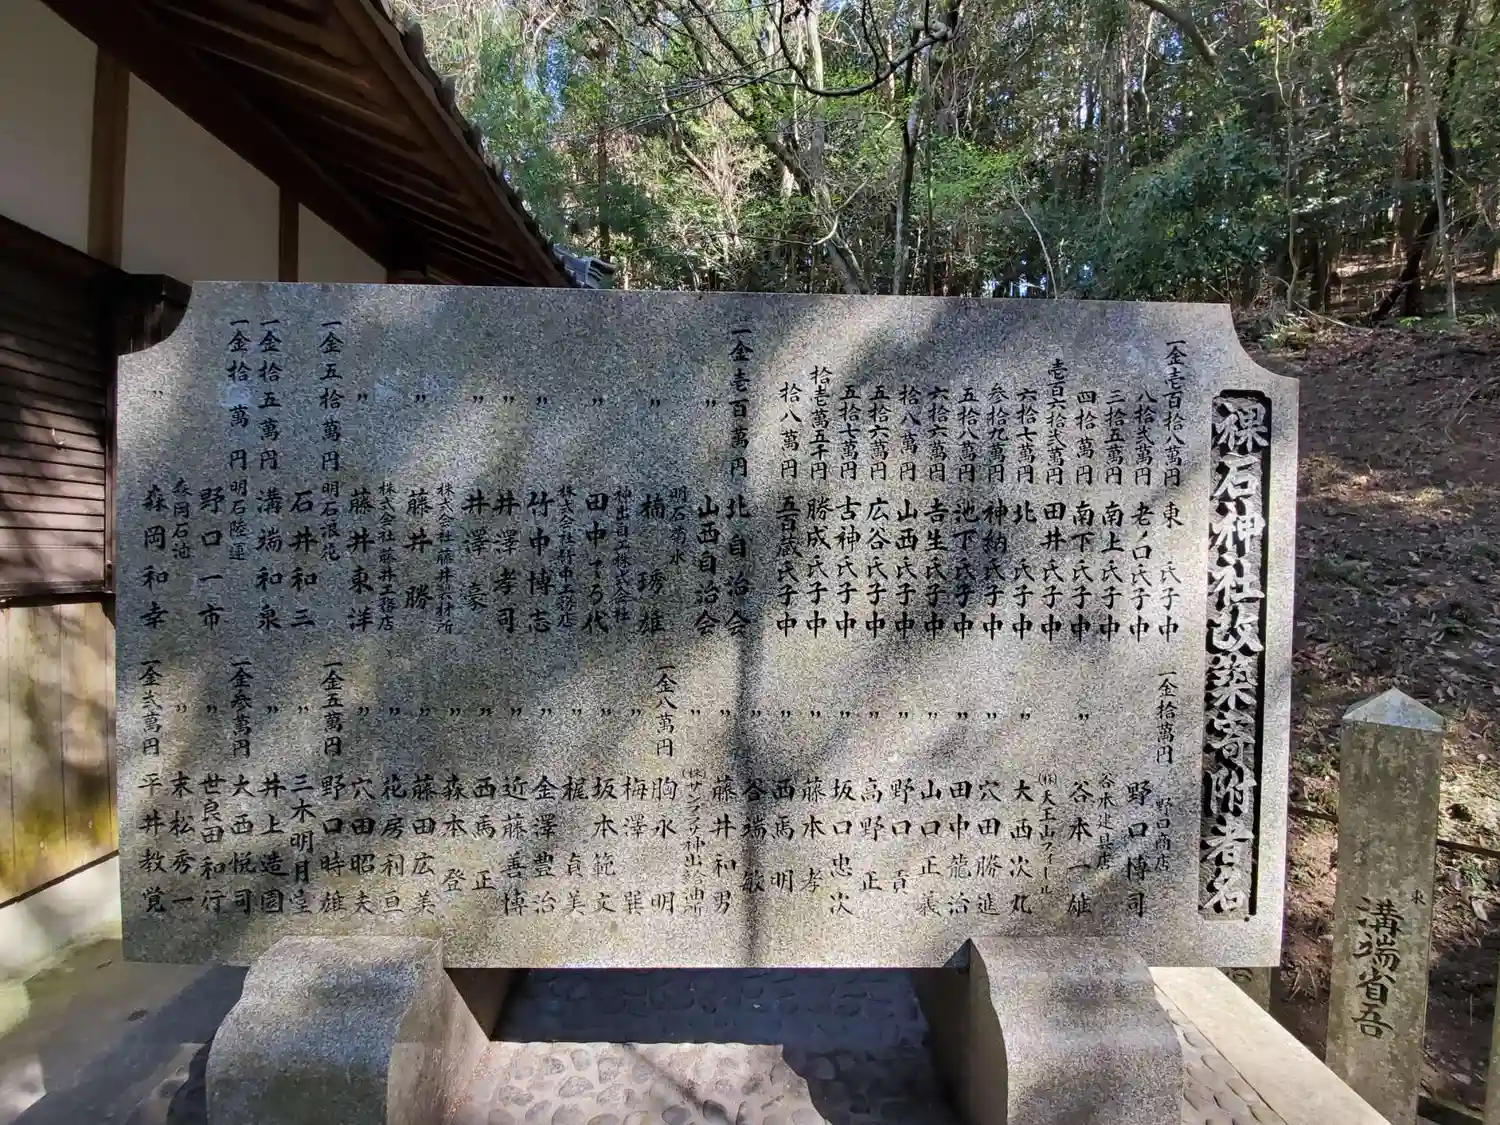 裸石神社改築寄附者名
一金壱百拾八萬円 東 氏子中
八拾弐萬円 老ノ口氏子中
三拾五萬円 南上氏子中
四拾萬円 南下氏子中
壱百六拾弐萬円 田井氏子中
六拾七萬円 北 氏子中
参拾九萬円 神納氏子中
五拾八萬円 池下氏子中
六拾六萬円 吉生氏子中
拾八萬円 山西氏子中
五拾六萬円 広谷氏子中
五拾七萬円 古神氏子中
拾壱萬五千円 勝成氏子中
拾八萬円 五百蔵氏子中
一金壱百萬円 北自治会
〃 山西自治会
〃 明石菊水 楠琇雄
〃 神出自工株式会社 田中てる代
〃 株式会社竹中工務店 竹中博志
〃 井澤孝司
〃 井澤豪
〃 株式会社藤井興材所 藤井勝
〃 株式会社藤井工務店 藤井東洋
一金五拾萬円 明石浪花 石井和三
一金拾五萬円 溝端和泉
一金拾萬円 明石陸運 野口一市
〃 森岡石油 森岡和幸
一金拾萬円 野口商店 野口博司
〃 谷本建具店 谷本一雄
〃 (株)天王山フィールド 大西次丸
〃 穴田勝進
〃 田中龍治
〃 山口正義
〃 野口貢
〃 高野正
〃 坂口忠次
〃 藤本孝
〃 西馬明
谷端敏
〃 藤井和男
一金八萬円 胸永明
〃 梅澤巽
〃 坂本範文
〃 梶貞美
〃 金澤豊治
〃 近藤善博
〃 西馬正
〃 森本登
〃 藤田広美
〃 花房利亘
〃 穴田昭夫
一金五萬円 野口時雄
〃 三木明月堂
〃 井上造園
一金参萬円 大西悦司
〃 世良田和行
〃 末松秀一
一金弐萬円 平井教覚
東 溝端省吾